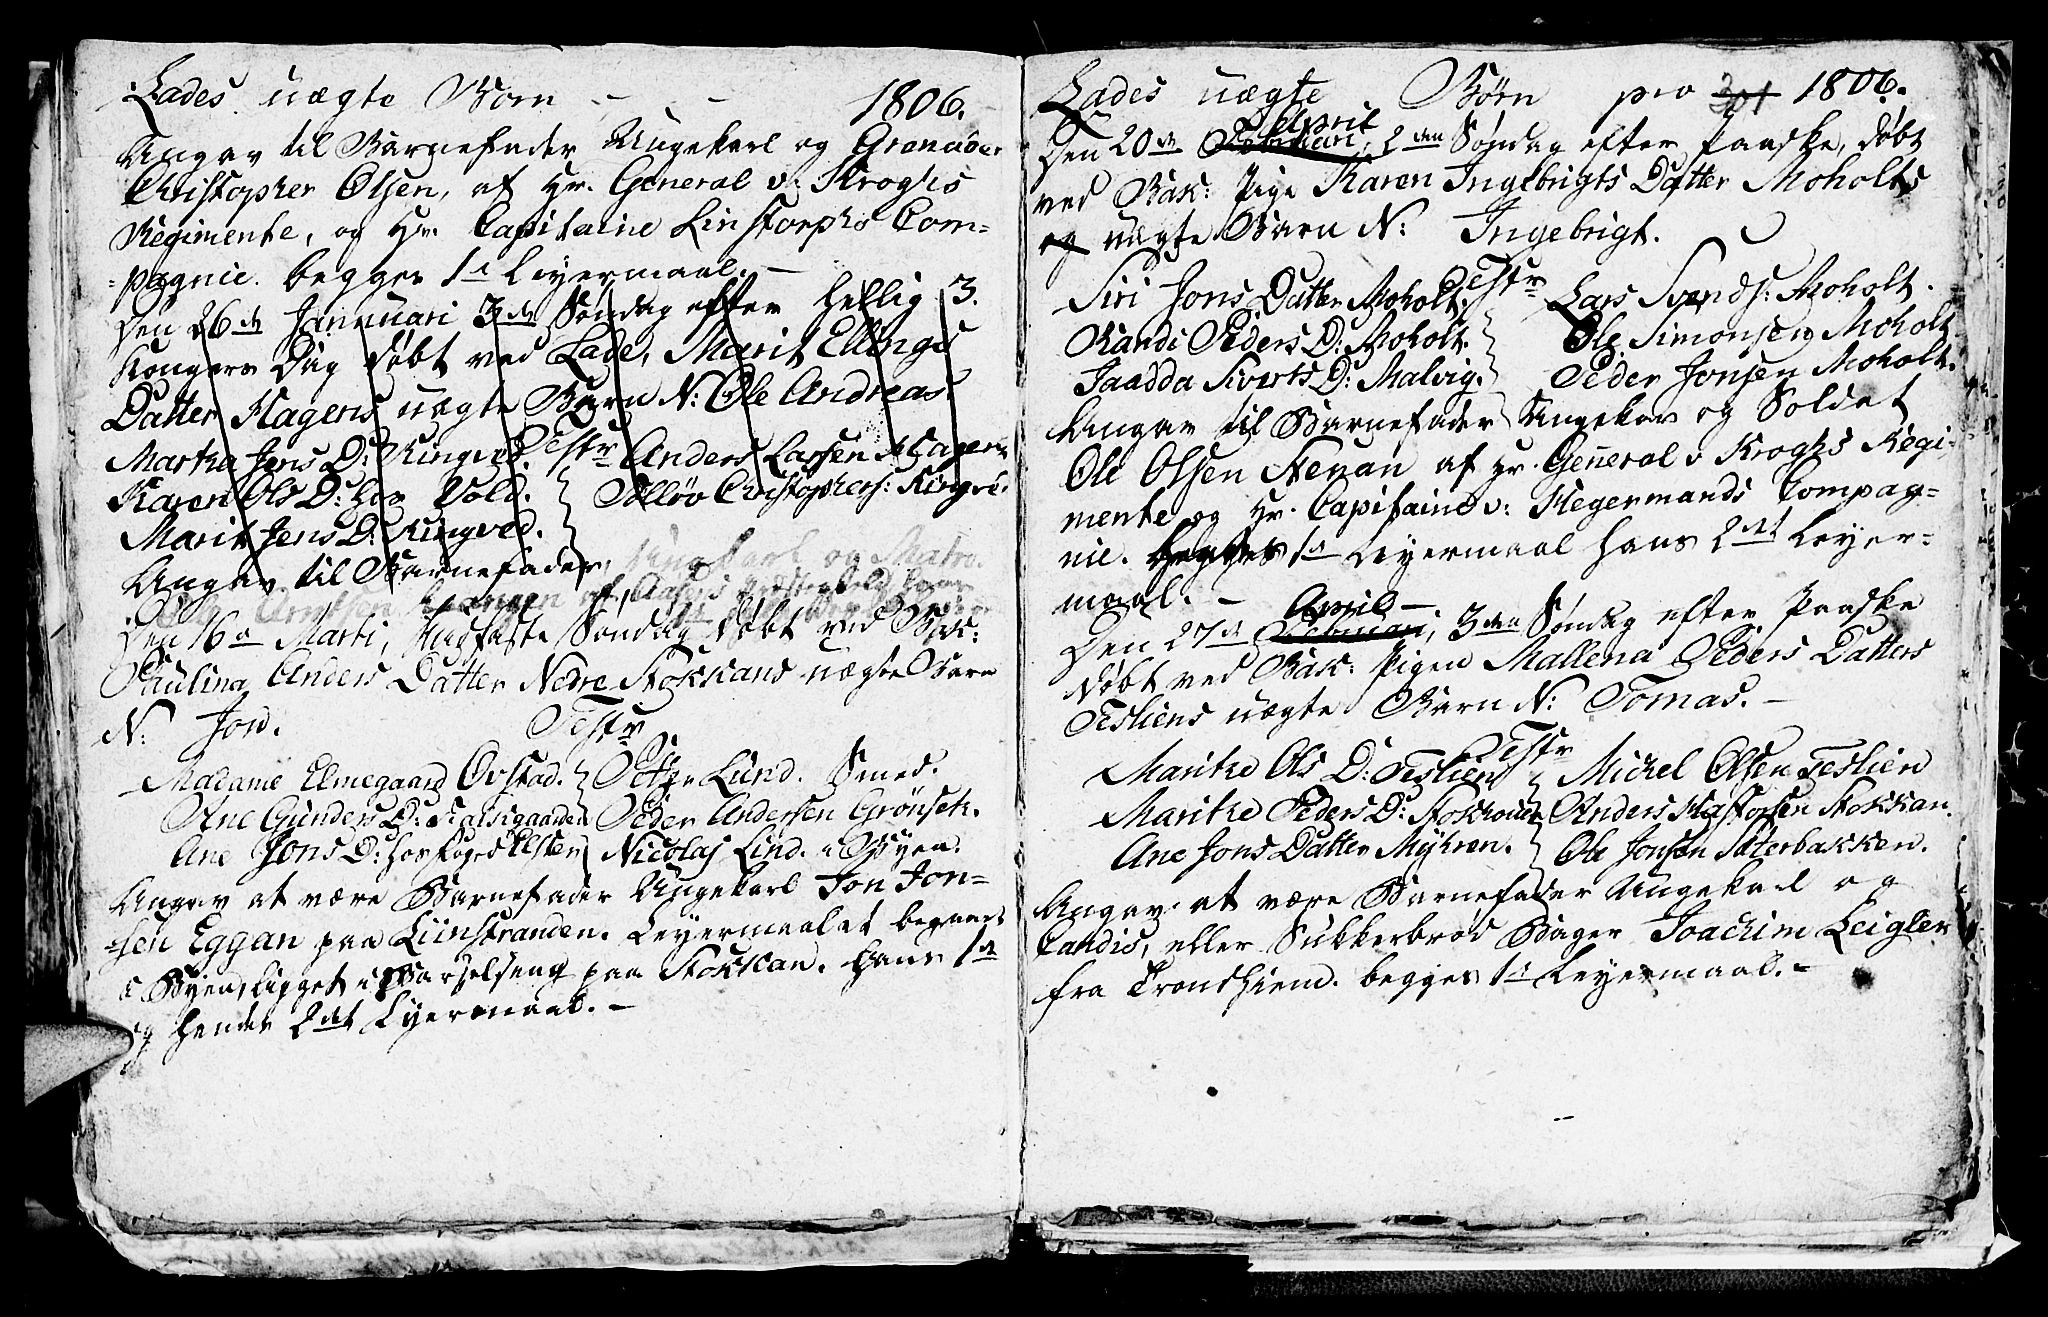 Lades uægte Børn - - 1806.
Angav til Barnefader Ungekarl og Grenadeer
Christopher Olsen, af Hr. General v: Kroghs
Regimente, og Hr. Capitaine Linstorphs Com-
pagnie. begges 1ste Leyermaal. -
Den 26de Januari 3de Søndag efter hellig 3.
Kongers Dag døbt ved Lade, Marit Ellings
Datter Hagens uægte Barn N: Ole Andreas.
Testr
Martha Jens D: Ringved. Anders Larsen Hagen
Karen Ols D: hos Vold. Elløv Christophers: Ringve.
Marit Jens D: Ringved.
Angav til Barnefader, Ungekarl og Matro.
Den 16de Marti, Midfaste Søndag døbt ved Bak:
Paulina Anders Datter Nedre Stokkans uægte Barn
N: Jon. Testr
Madame Elmegaard Øvstad. Petter Lund. Smed.
Ane Gunders D: Peder Andersen Grønsek.
Ane Jons D: hos Nicolaj Lind. i Byen.
Angav at være Barnefader Ungekarl Jon Jon-
sen Eggan paa Liinstranden. Leyermaalet begaaet
i Byen, ligget i Barselseng paa Stokkan. hans 1ste
og hendes 2det Leyermaal. -
Lades uægte Børn pro 301 1806.
April
Den 20de Februari, 2den Søndag efter Paaske, døbt
ved Bak: Pige Karen Ingebrigts Datter Moholts
og uægte Barn N: Ingebrigt.
Testr
Siri Jons Datter Moholt. Lars Svends: Moholt.
Randi Peders D: Moholt. Ole Simonsen Moholt
Jaadda Siverts D: Malvig. Peder Jonsen Moholt.
Angav til Barnefader Ungekar og Soldat
Ole Olsen Nevan af Hr. General v Kroghs Regi-
mente og Hr. Capitaine v: Hegermands Compag-
nie. begges 1ste Leyermaal hans 2det Leyer-
maal. -
April -
Den 27de Februari, 3den Søndag efter Paaske
døbt ved Bak: Pigen Mallena Peders Datters
Tesliens uægte Barn N: Tomas. -
Testr
Maritke Ols D: Teslien Michel Olsen Teslien
Maritke Peders D: Stokkan Anders Hastorsen Stokkan.
Ane Jons Datter Myhren. Ole Jonsen Sæterbakken.
Angav at være Barnefader Ungekarl og
Candis, eller Sukkerbrød Bager Joachim Zeigler
fra Trondhiem. begges 1ste Leyermaal. -